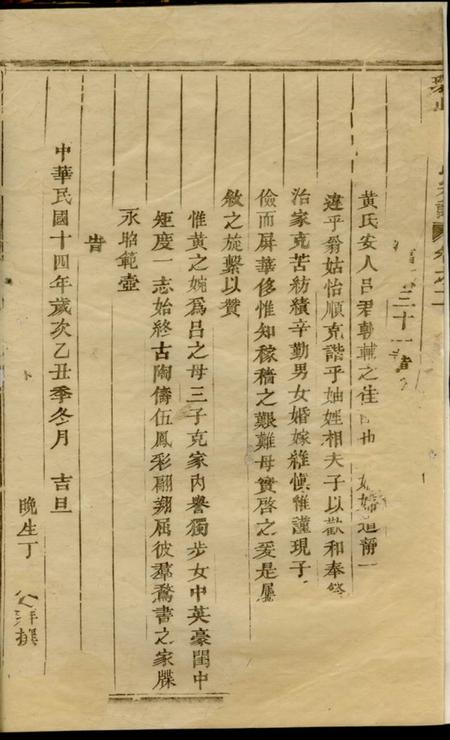 三十一
黃氏安人呂君朝輔之 道靜一
違乎翁姑怡順克諧乎妯娌相夫子以歡和奉
治家克苦紡績辛勤男女婚嫁維慎惟謹現子
儉而屏華侈惟知稼穡之艱難母實啓之爰是屬
敘之旋繫以贊
惟黃之婉爲呂之母三子克家內譽獨步女中英豪閨中
矩度一志始終古陶儔伍鳳彩翩翔屆彼羣騖書之家牒
永昭範壼
旹
中華民國十四年歲次乙丑季冬月 吉旦
晚生丁 撰